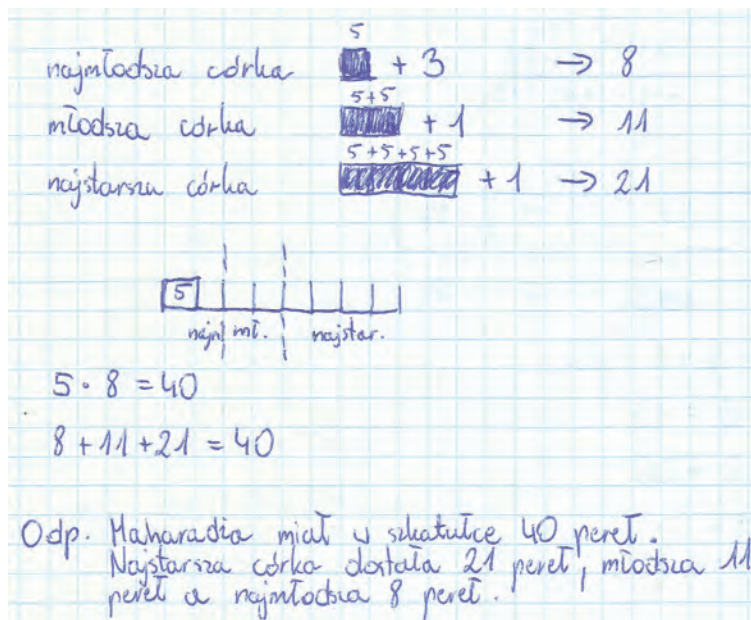 5
najmłodsza córka + 3 → 8
5+5
młodsza córka + 1 → 11
5+5+5+5
najstarsza córka + 1 → 21
5
najm mł. najstar.
5 · 8 = 40
8 + 11 + 21 = 40
Odp. Maharadża miał w szkatułce 40 pereł.
Najstarsza córka dostała 21 pereł, młodsza 11
pereł a najmłodsza 8 pereł.